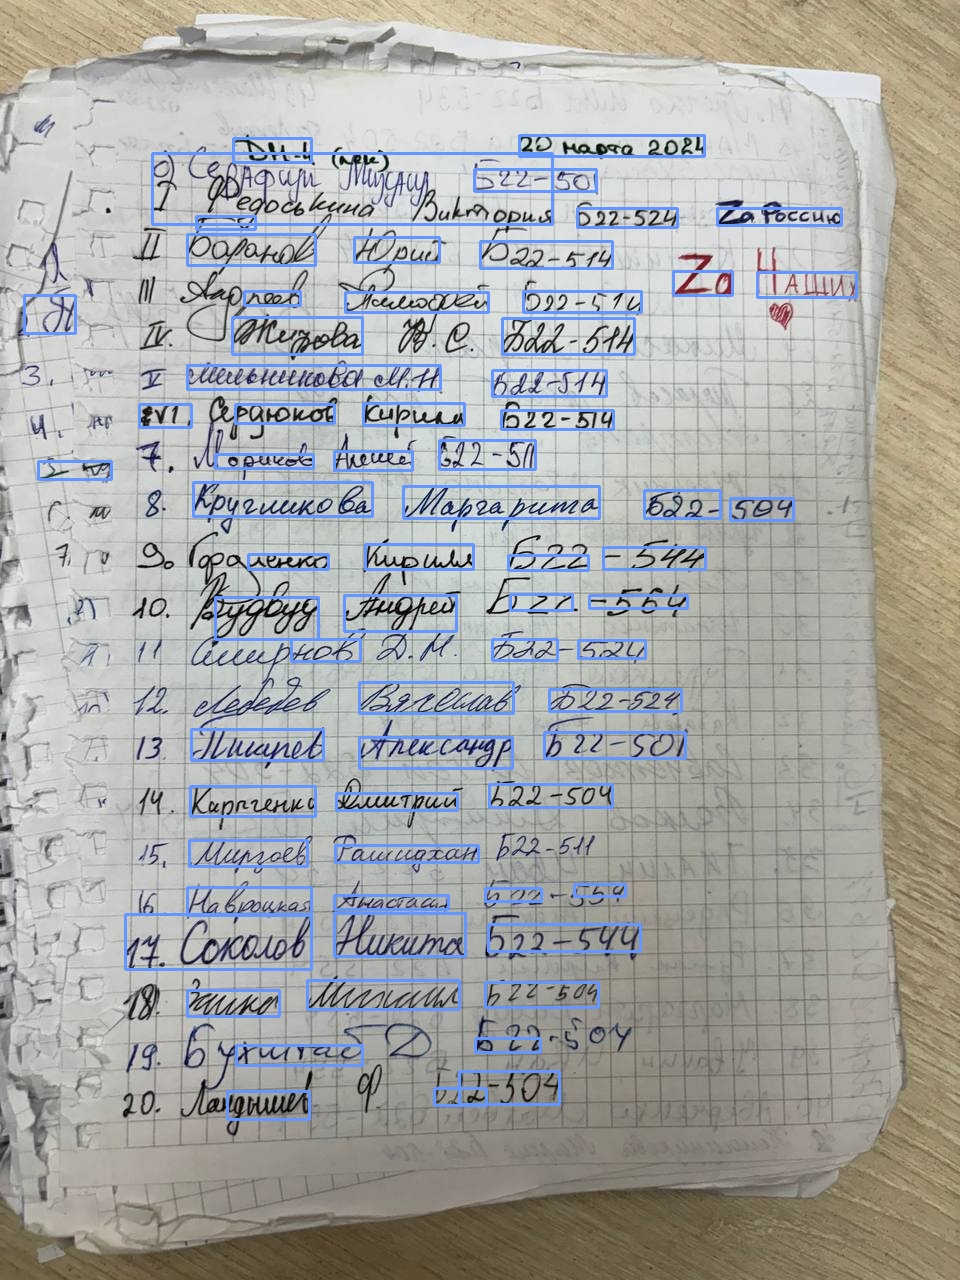 ДМ-4 (лек) 20 марта 2024
0) Серафим Михаил Б22-501
I Федоськина Виктория Б22-524 Za Россию
II Баранов Юрий Б22-514 Za Наших
III Андреев Тимофей Б22-514
IV. Жизова В. С. Б22-514
V Мельникова М.Н Б22-514
VI. Сердюков Кирилл Б22-514
7. Мориков Алексей Б22-511
8. Кругликова Маргарита Б22-504
9. Гордиенко Кирилл Б22-544
10. Вудвуд Андрей Б22-554
11 Смирнов Д.М. Б22-524
12. Лебедев Вячеслав Б22-524
13 Писарев Александр Б22-501
14. Карпенко Дмитрий Б22-504
15. Мирзоев Рашидхан Б22-511
16. Навроцкая Анастасия Б22-554
17. Соколов Никита Б22-544
18) Заика Михаил Б22-504
19. Бухштаб Д Б22-504
20. Ландышев Ф Б22-504